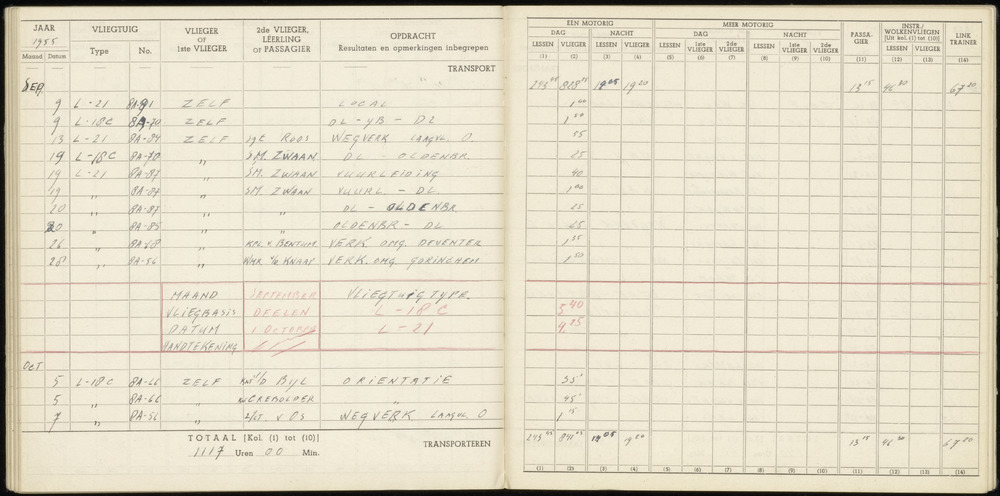 JAAR 1955
Maand Datum
VLIEGTUIG
Type No.
VLIEGER or 1ste VLIEGER
2de VLIEGER, LEERLING or PASSAGIER
OPDRACHT
Resultaten en opmerkingen inbegrepen
TRANSPORT
SEP.
9 L-21 ZELF LOCAL
9 L-18C 8A-70 ZELF DL - YB - DL
13 L-21 8A-84 ZELF sgt Roos WEGVERK LAAGVL. O.
19 L-18C 8A-70 " S.M. ZWAAN DL - OLDENBR.
19 L-21 8A-87 " S.M. ZWAAN VUURLEIDING
19 " 8A-87 " S.M. ZWAAN VUURL - DL.
20 " 8A-87 " " DL - OLDENBR
20 " 8A-85 " OLDENBR - DL
26 " " KPL. v BENTUM VERK. OMG. DEVENTER
28 " 8A-56 " WMR v/d KNAAP VERK. OMG GORINCHEM
MAAND SEPTEMBER VLIEGTUIGTYPE.
VLIEGBASIS DEELEN L-18C
DATUM 1 OCTOBER L-21
HANDTEKENING
OCT
5 L-18C 8A-66 ZELF BYL ORIENTATIE
5 " 8A-66 " GREBOLDER "
7 " 8A-56 " 2/LT. V OS WEGVERK LAAGVL. O
TOTAAL [Kol. (1) tot (10)]
1117 Uren 00 Min.
TRANSPORTEREN
EEN MOTORIG
DAG NACHT
LESSEN VLIEGER LESSEN VLIEGER
(1) (2) (3) (4)
MEER MOTORIG
DAG NACHT
LESSEN 1ste VLIEGER 2de VLIEGER LESSEN 1ste VLIEGER 2de VLIEGER
(5) (6) (7) (8) (9) (10)
PASSA- GIER
(11)
INSTR./ WOLKENVLIEGEN
[Uit kol. (1) tot (10)]
LESSEN VLIEGER
(12) (13)
LINK TRAINER
(14)
243 05 19 05 19 20 13 15 46 30 67 20
1 00
1 50
55
25
40
1 00
25
25
1 35
1 50
5 40
55
45
1 15
243 05 841 05 19 05 19 20 13 15 46 30 67 20
(1) (2) (3) (4) (5) (6) (7) (8) (9) (10) (11) (12) (13) (14)